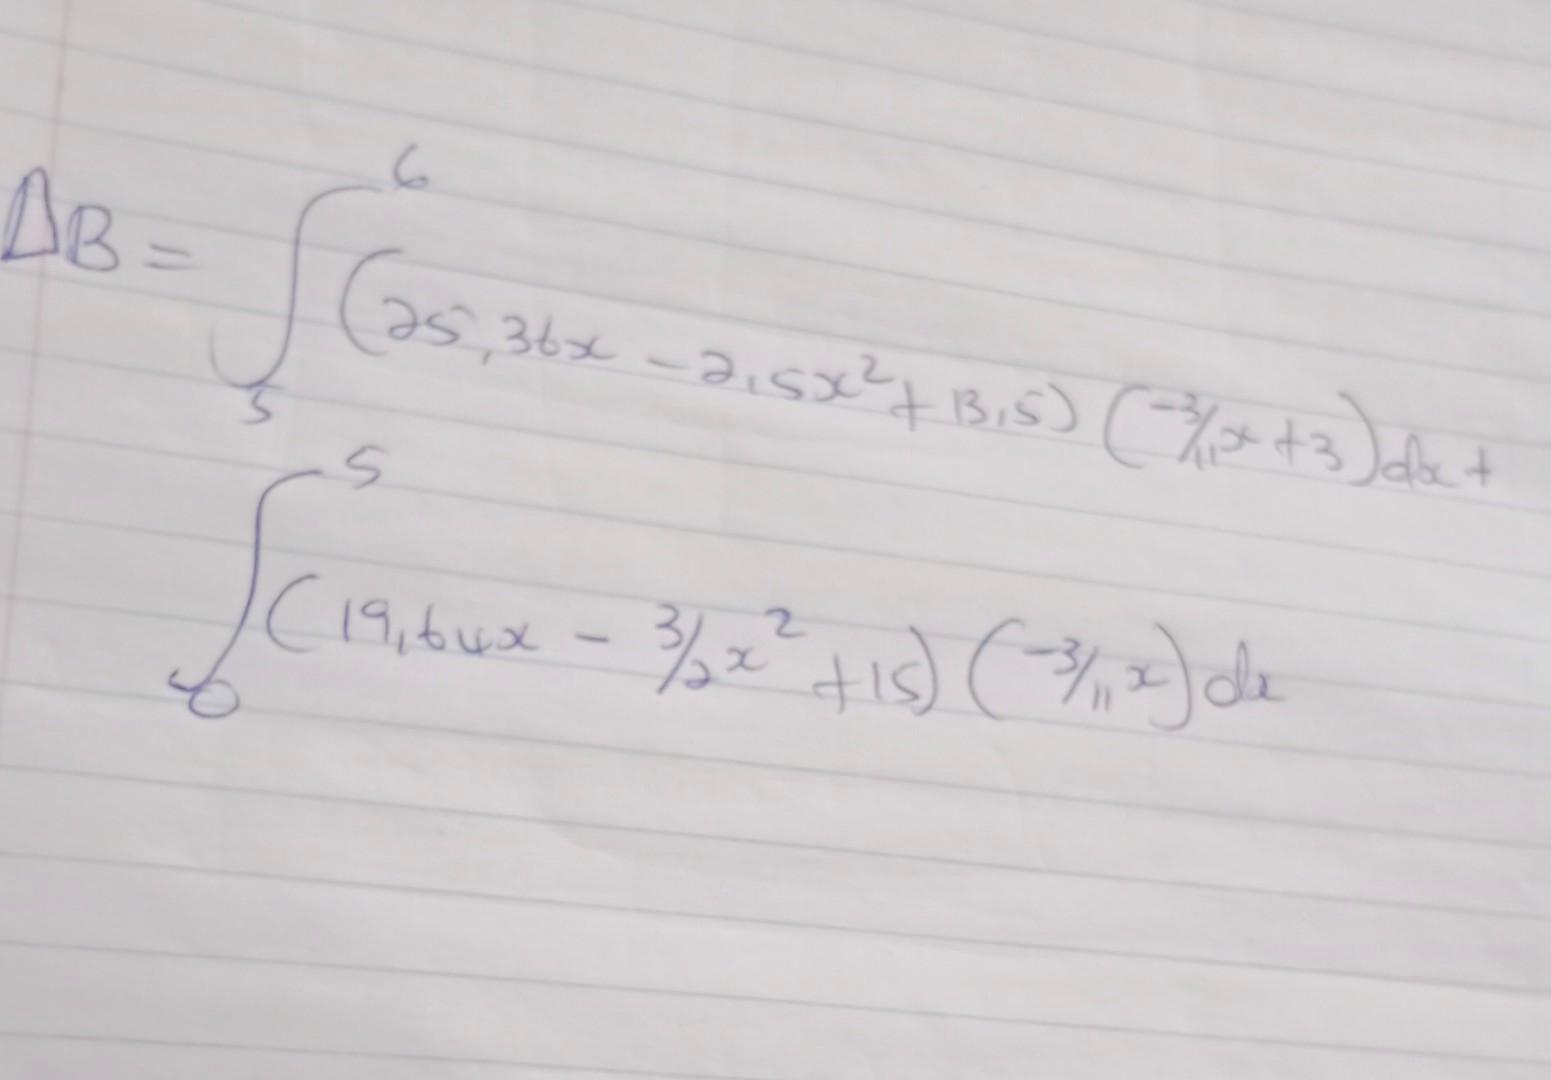 ΔB = ∫₅⁶ (25,36x − 2,5x² + 13,5) (−3/11x + 3) dx +
∫₀⁵ (19,64x − 3/2x² + 15) (−3/11x) dx